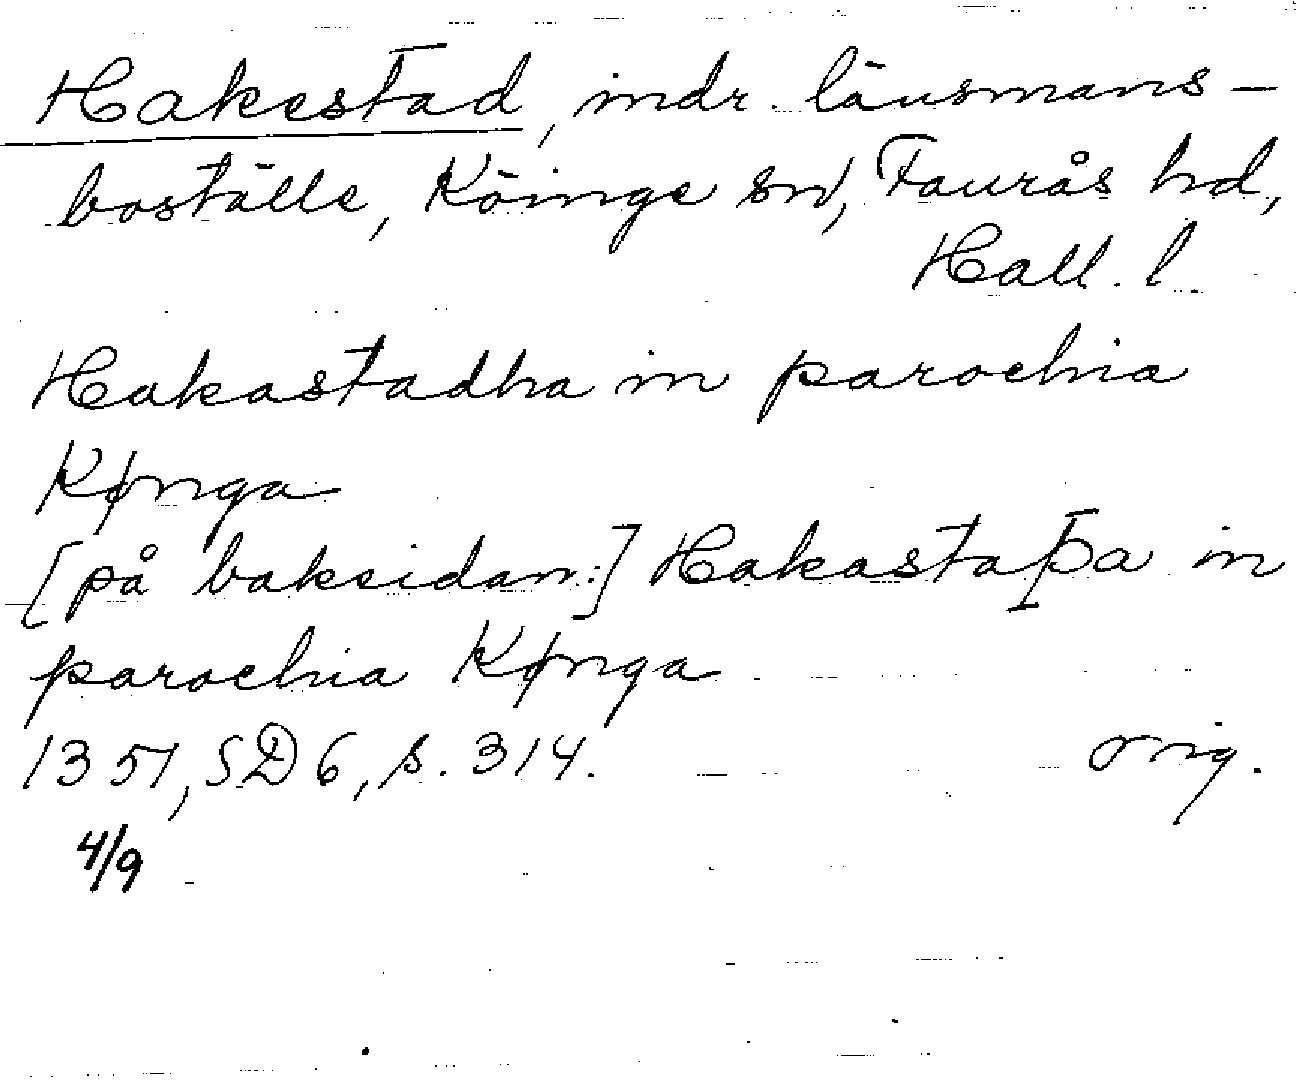 Hakestad, indr. länsmans-
boställe, Köinge sn, Faurås hd,
Hall. l.
Hakastadha in parochia
Kønga
[på baksidan:] Hakastaþa in
parochia Kønga
1351, SD 6, s. 314. orig.
4/9